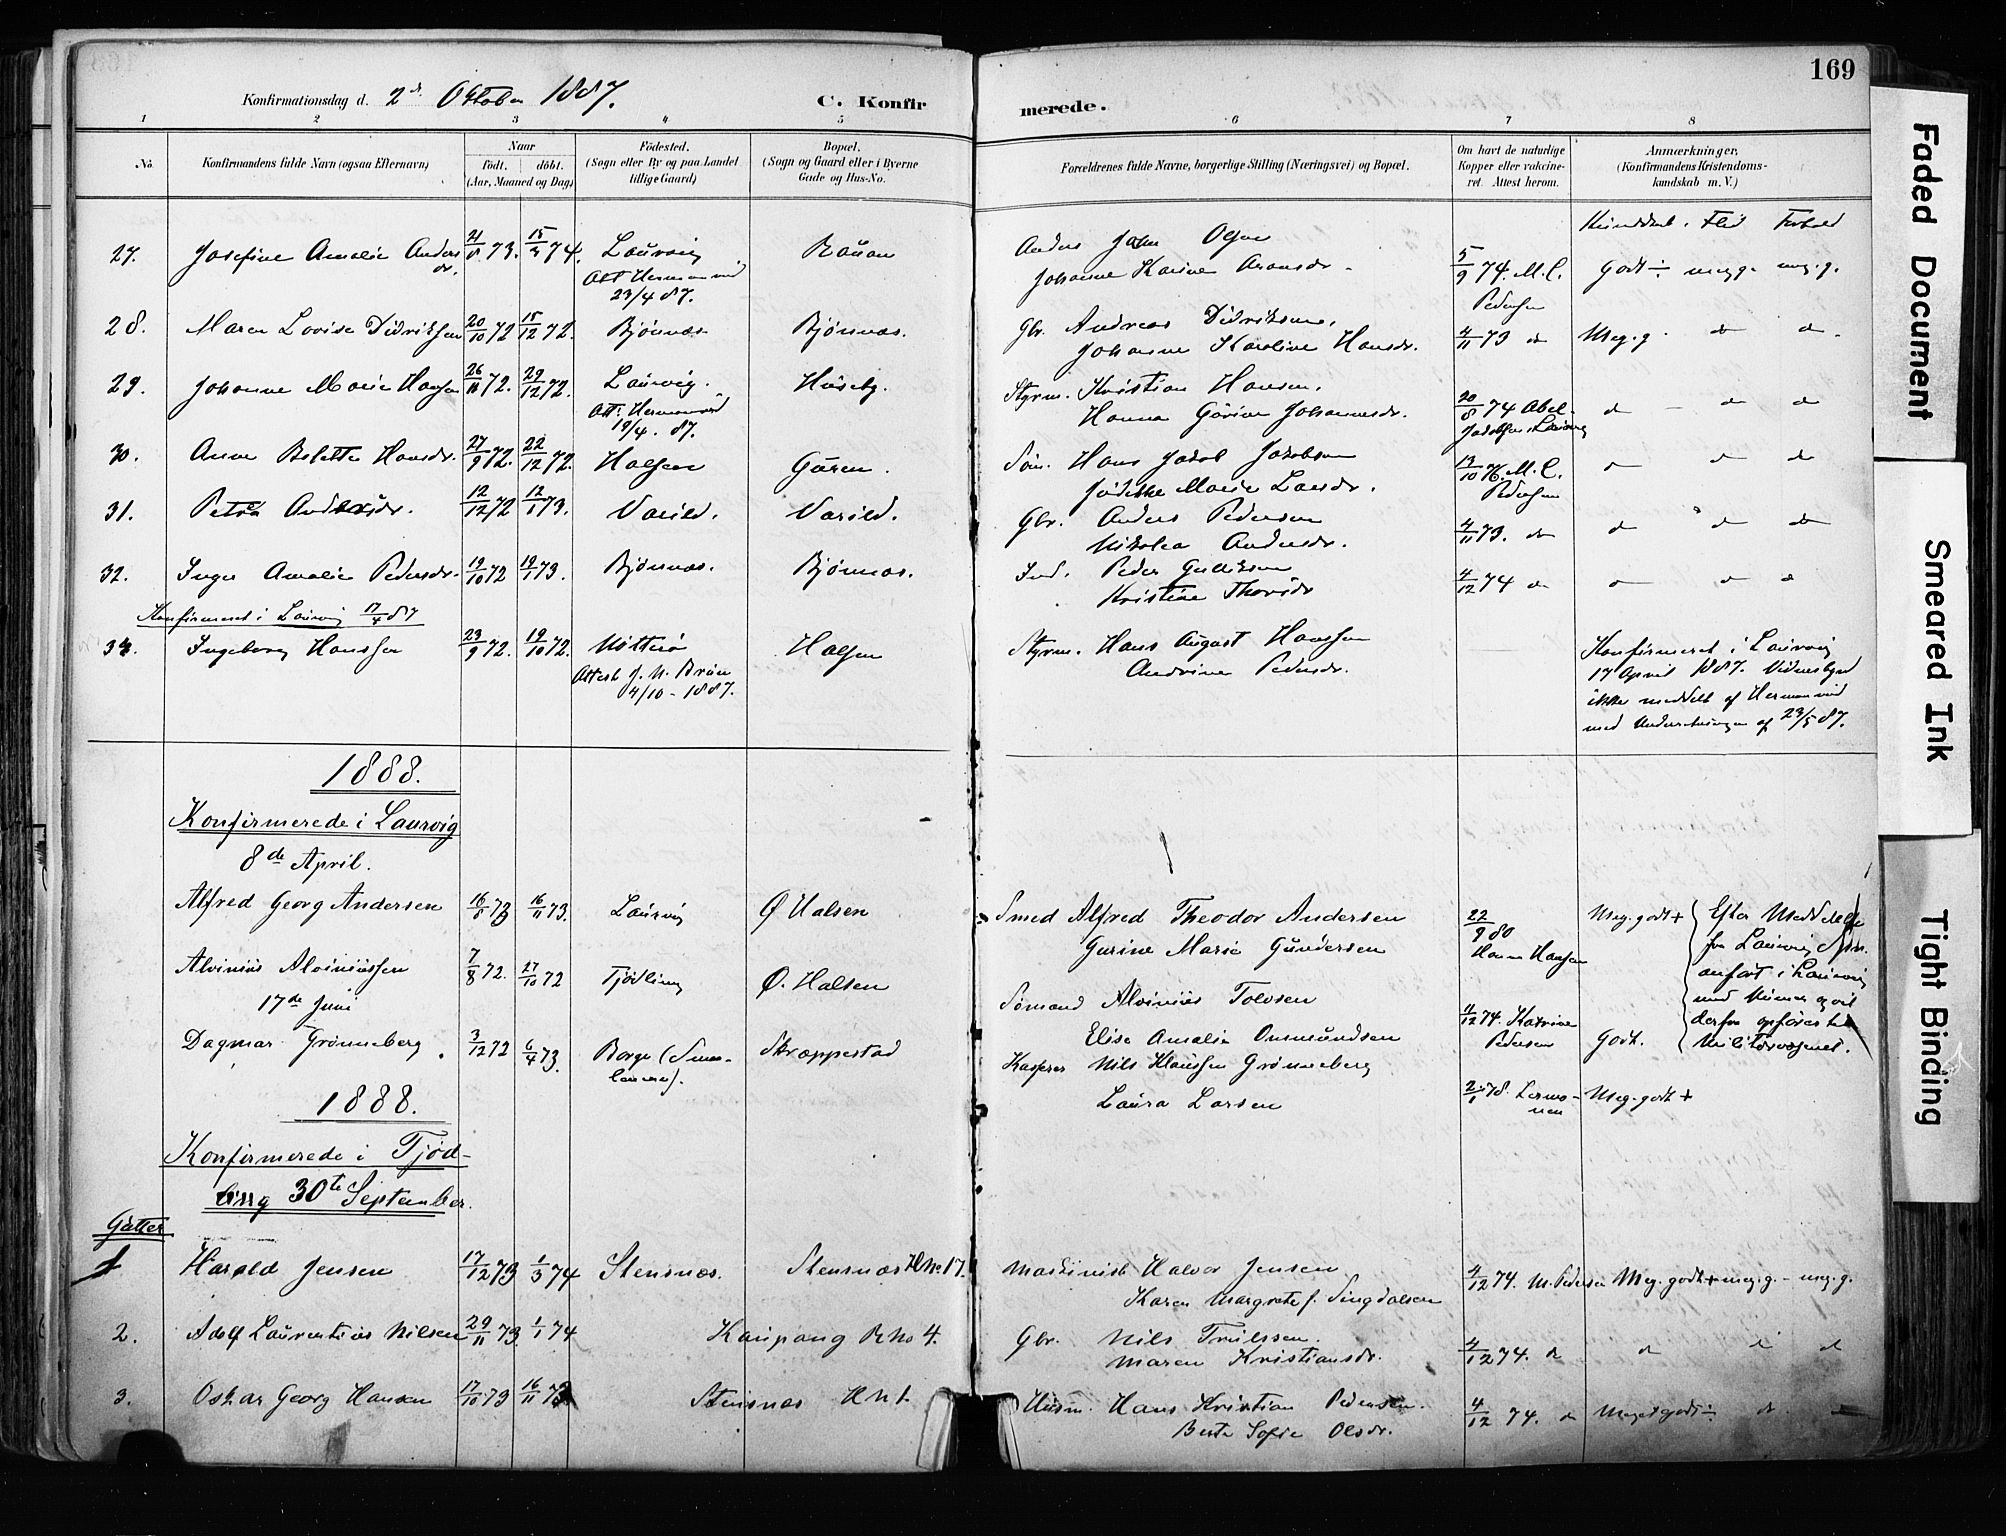 169
Konfirmationsdag d. 2de Oktober 1887. C. Konfirmerede.
1 2 3 4 5 6 7 8
No. Konfirmandens fulde Navn (ogsaa Efternavn) Naar født. døbt. (Aar, Maaned og Dag) Fødested. (Sogn eller By og paa Landet tillige Gaard) Bopæl. (Sogn og Gaard eller i Byerne Gade og Hus-No. Forældrenes fulde Navne, borgerlige Stilling (Næringsvei) og Bopæl. Om havt de naturlige Kopper eller vaccineret. Attest herom. Anmærkninger. (Konfirmandens Kristendomskundskab m. V.)
Kundskab. Flid Forhold
27. Josefine Amalie Andersdr. 21/8 73. 15/3 74. Laurvig Rauan Anders John Olsen 5/9 74. M. C. Godt ÷ meg.g. meg.g.
Att Hermanrud 23/4 87. Johanne Karine Aronsdr. Pedersen
28. Maren Lovise Didriksen 20/10 72 15/12 72. Bjønnæs Bjønnæs. Gbr. Andreas Didriksen, 4/11 73 do Meg.g. do do
Johanne Karoline Hansdr.
29. Johanne Marie Hansen 26/11 72. 29/12 72. Laurvig. Huseby. Styrm. Kristian Hansen, 20/8 74 Abel do do do
Att: Hermanrud 19/4. 87. Hanna Gurine Johannesdr. Jakobsen Laurvig
30. Anne Bolette Hansdr. 27/9 72. 22/12 72. Halsen Guren. Søm. Hans Jakob Jakobsen 13/10 76. M. C. do do do
Marie Larsdr. Pedersen
31. Petra Andersdr. 12/12 72 12/1 73. Varild. Varild. Gbr. Anders Pedersen 4/11 73. do do do do
Nikolea Andersdr.
32. Inger Amalie Pedersdr. 19/10 72 19/1 73. Bjønnæs. Bjønnæs. Ind. Peder Gulliksen 4/12 74 do do do do
Kristine Thorsdr
Konfirmeret i Laurvig 17/4 87
33. Ingeborg Hanssen 23/9 72. 19/10 72. Nøtterø Halsen Styrm. Hans August Hanssen Konfirmeret i Laurvig
Attest J. N. Bruun 4/10 - 1887. Andrine Pedersdr. 17 April 1887. Vidnesbyrd
ikke meddelt af Hermanrud
med Underretningen af 23/5 87.
1888.
Konfirmerede i Laurvig
8de April.
Alfred Georg Andersen 16/8 73 16/11 73. Laurvig Ø Halsen Smed Alfred Theodor Andersen 22/9 80 Meg.godt + Efter Meddelelse
Gurine Marie Gundersen Hanna Hansen fra Laurvig
Alvinius Alviniussen 7/8 72. 27/10 72 Tjødling Ø. Halsen Sømand Alvinius Tolvsen 11/12 74. Katrine Godt. anført i Laurvig
17de Juni Elise Amalie Onsmundsen Pedersen med Numer og vil
derfra opføres til
Militærvæsenet.
Dagmar Grønneberg 3/12 72 6/4 73. Borge (Smaalenene). Skræppestad Kasserer Nils Klaussen Grønneberg 2/1 78. Meg.godt +
Laura Larsen
1888.
Konfirmerede i Tjødling 30te September.
Gutter
1 Harald Jensen 17/12 73 1/3 74 Stensnæs. Stensnæs H.No 17. Maskinist Halvor Jensen 4/12 74. M. Pedersen Meg.godt + meg.g. - meg.g.
Karen Margrete f. Singdalsen
2. Adolf Laurentius Nilsen 29/11 73 1/1 74 Kaupang B No 4. Gbr. Nils Trulssen. 4/12 74. do do do do
Maren Kristiansdr.
3. Oskar Georg Hansen 17/10 73 16/11 73 Stensnæs H.N 1. Husm. Hans Kristian Pedersen. 4/12 74. do Meget godt ÷ do do
Berte Sofie Olsdr.
Faded Document
Smeared Ink
Tight Binding